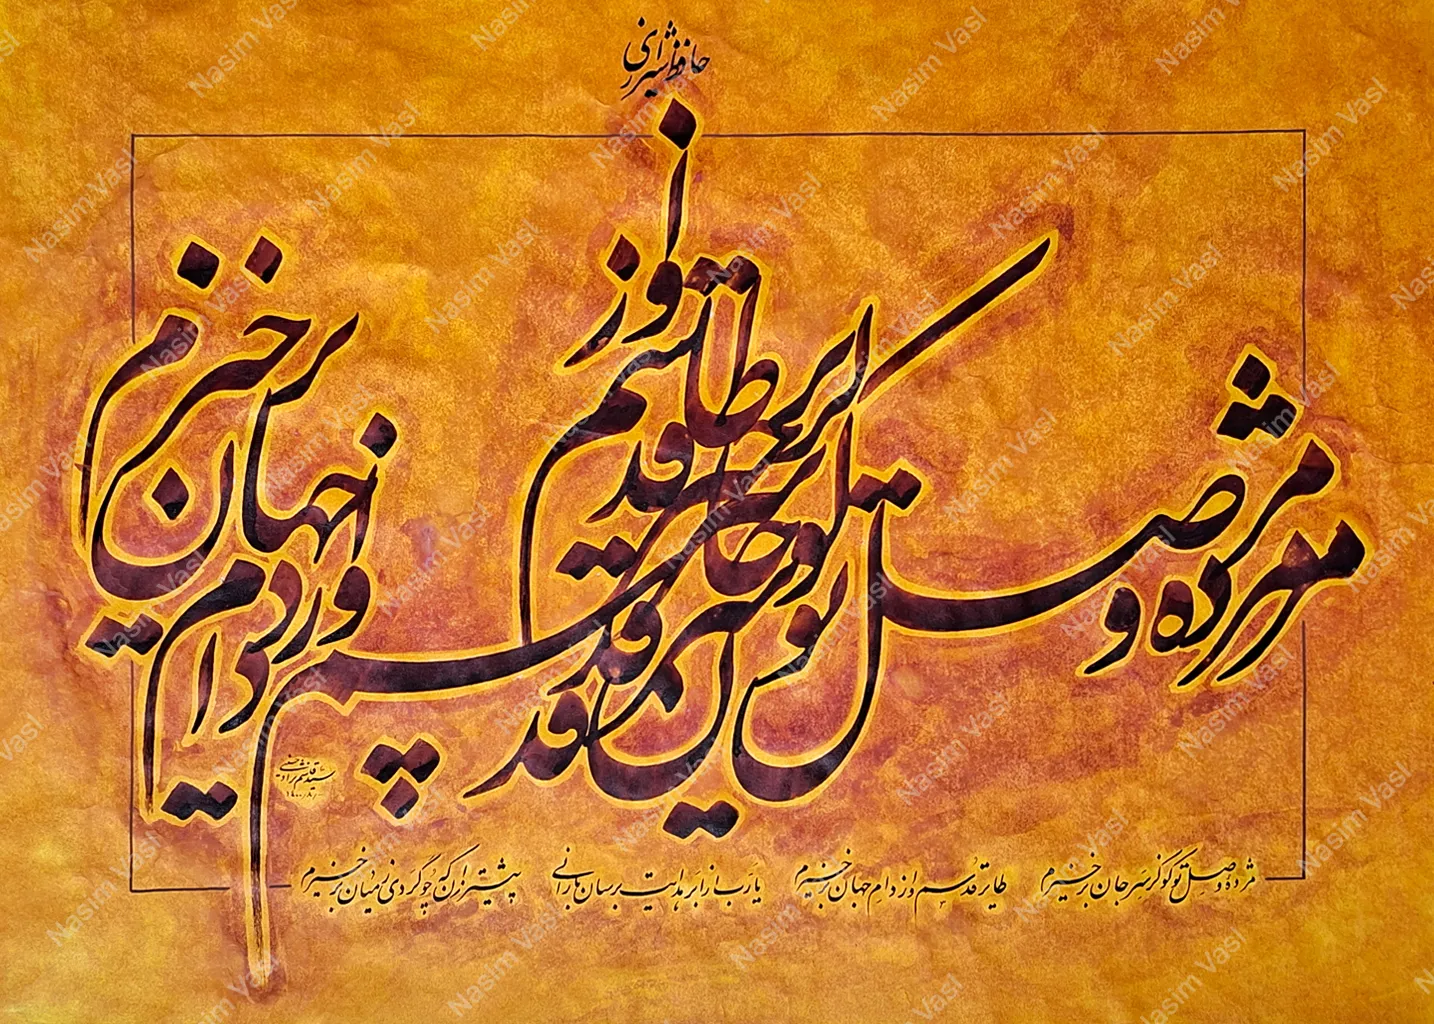 حافظ شیرازی
مژده وصل تو کو کز سر جان برخیزم
طایر قدسم و از دام جهان برخیزم
سید قاسم
مژده وصل تو کو کز سر جان برخیزم طایر قدسم و از دام جهان برخیزم یارب از ابر هدایت برسان بارانی پیشتر زان که چو گردی ز میان برخیزم
Nasim Vasl